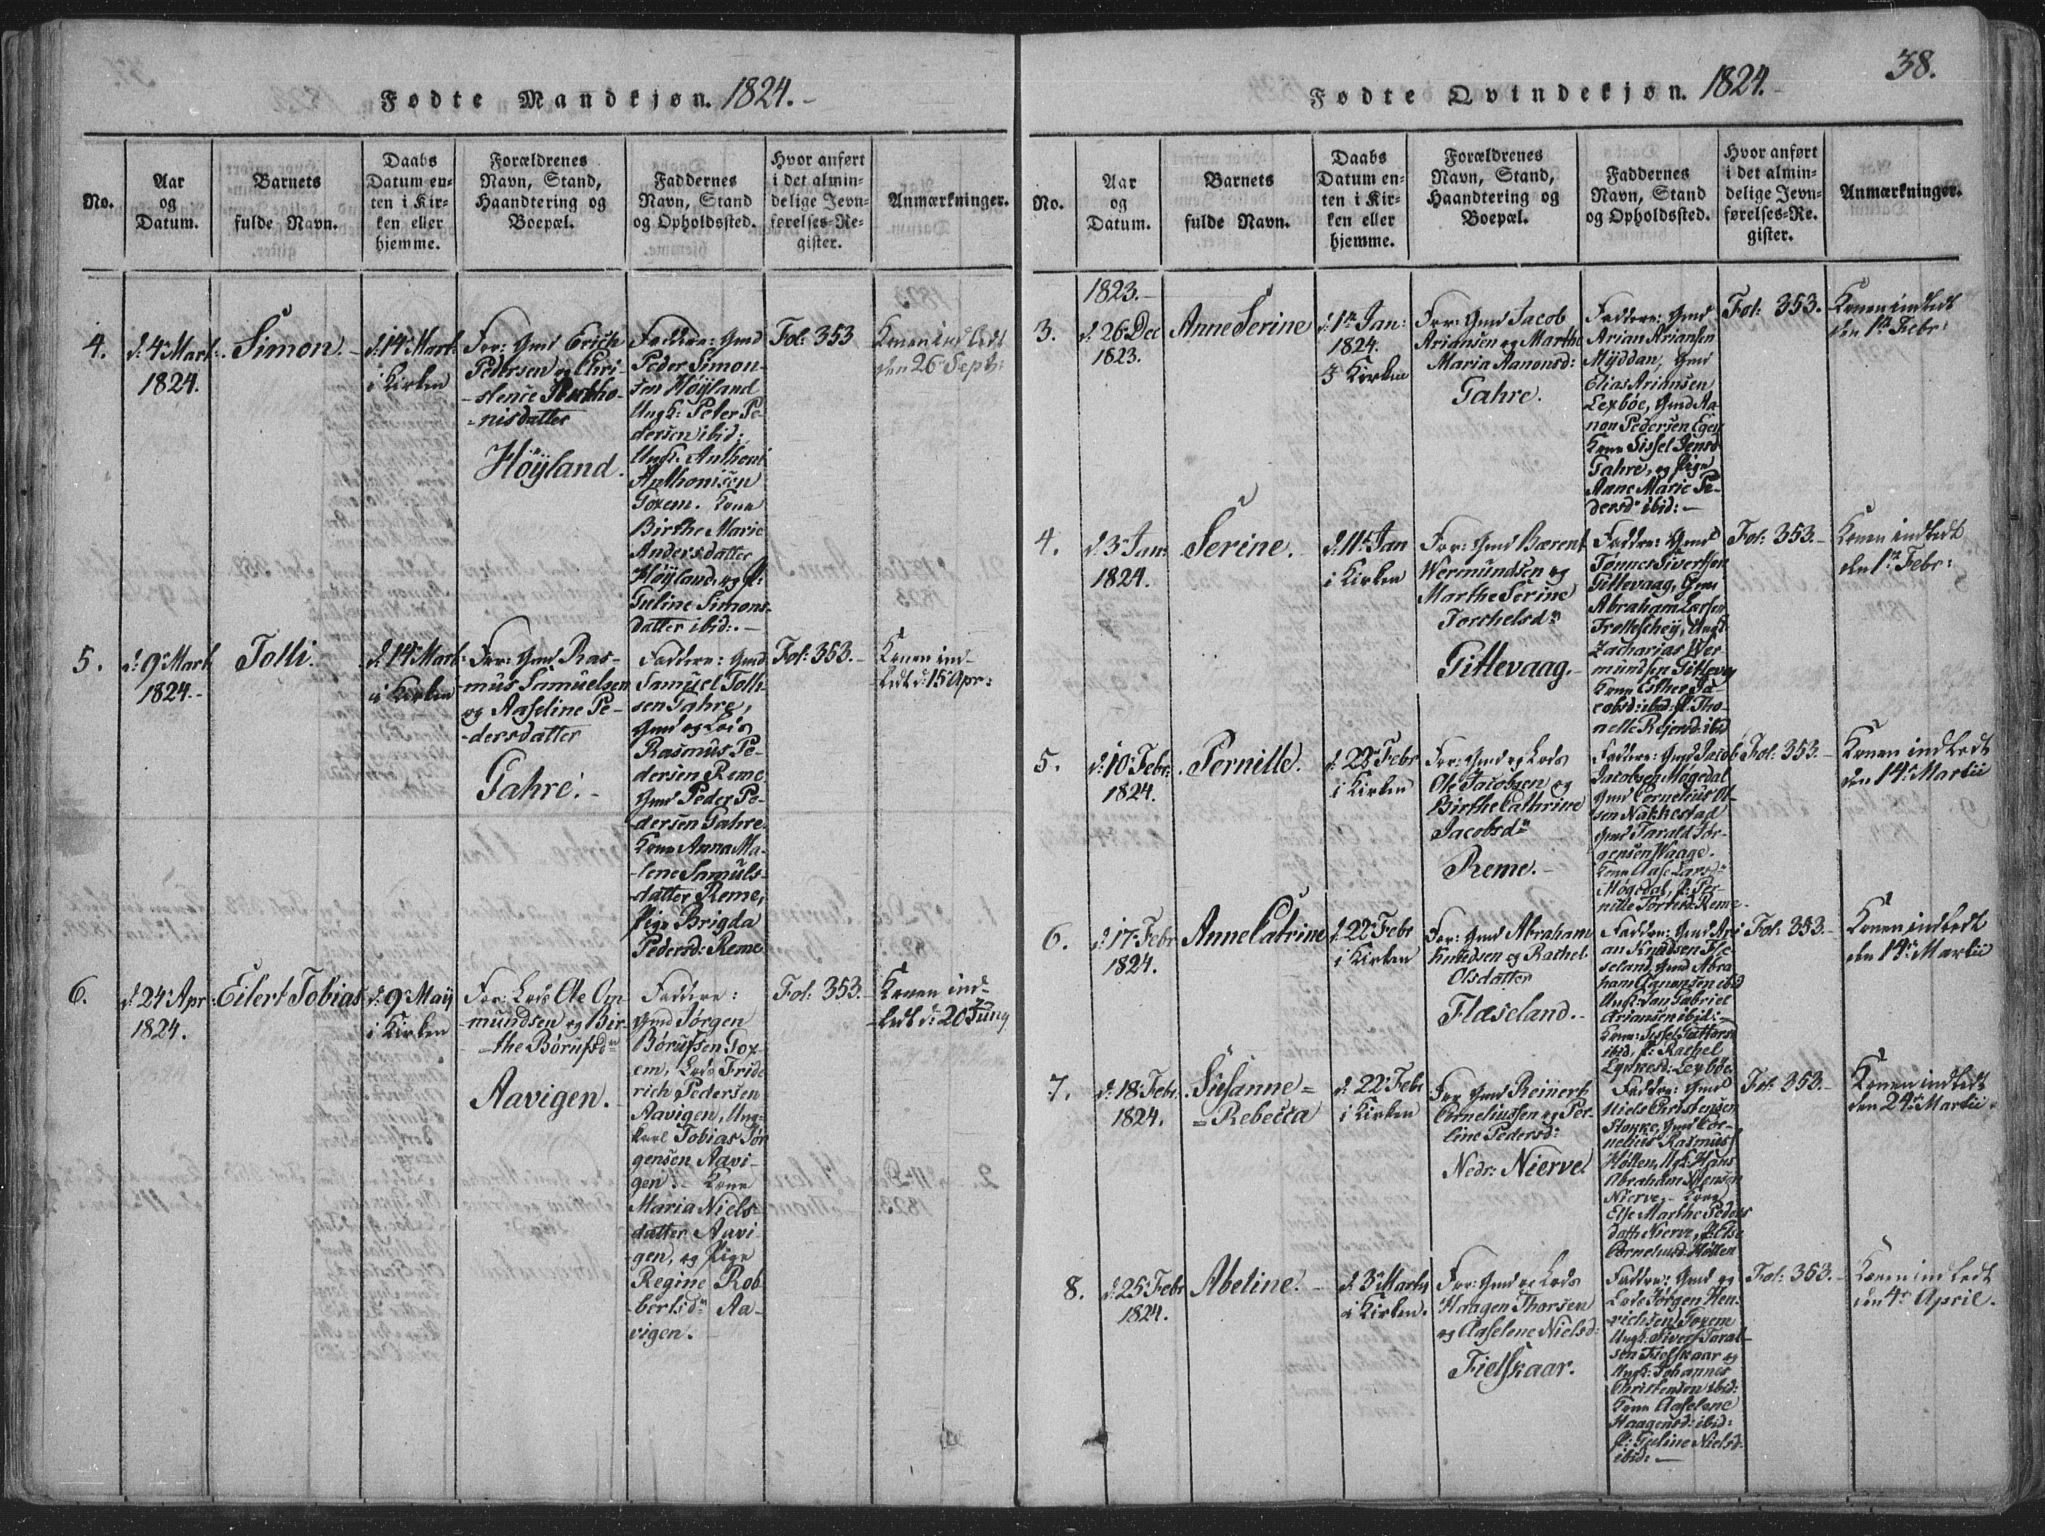 Fødte Mandkjøn. 1824.
No.
Aar
og
Datum.
Barnets
fulde Navn.
Daabs
Datum en-
ten i Kir-
ken eller
hjemme.
Forældrenes
Navn, Stand,
Haandtering og
Boepæl.
Faddernes
Navn, Stand
og Opholdssted.
Hvor anført
i det almin-
delige Jevn-
førelses-Re-
gister.
Anmærkninger.
4.
d: 4 Mart:
1824.
Simon.
d: 14 Mart:
i Kirken
For: Gmd Erich
Pedersen og Chri-
-stence Antho-
-nisdatter
Höÿland.
Faddere: Gmd
Peder Simon-
sen Höÿland
Ungk: Peter Pe-
dersen ibid:
Ungk: Anthoni
Anthonisen
Foxem. Kone
Birthe Marie
Andersdatter
Höÿland og P:
Guline Simons-
datter ibid:.—
Fol: 353
Konen indledt
den 26 Sept:
5.
d: 9 Mart
1824.
Tolli.
d: 14 Mart:
i Kirken
For: Gmd Ras-
mus Samuelsen
og Aaseline Pe-
-dersdatter
Gahre.
Faddere: Gmd
Samuel Tolli-
sen Gahre,
Gmd og Lods
Rasmus Pe-
dersen Reme
Gmd Peder Pe-
dersen Gahre
Kone Anna Ma-
-lene Samuls-
datter Reme,
Pige Brigda
Pedersd: Reme
Fol: 353.
Konen ind-
ledt d: 15 Apr:
6.
d: 24 Apr:
1824.
Eilert Tobias
d: 9 Maij
i Kirken
For: Lods Ole Om
-mundsen og Bir-
-the Börufsd
Aavigen.
Faddere:
Gmd Jørgen
Börufsen Fox-
em, Lods Fride
rich Pedersen
Aavigen, Ung-
karl Tobias Jør
gensen Aavi-
gen. Kone
Maria Niels-
datter Aavi-
gen, og Pige
Regine Rob-
bertsd: Aa-
vigen.
Fol: 353.
Konen ind-
ledt d: 20 Juny
38.
Fødte Qvindekjøn. 1824.
No.
Aar
og
Datum.
Barnets
fulde Navn.
Daabs
Datum en-
ten i Kir-
ken eller
hjemme.
Forældrenes
Navn, Stand,
Haandtering og
Boepæl.
Faddernes
Navn, Stand
og Opholdssted.
Hvor anført
i det almin-
delige Jevn-
førelses-Re-
gister.
Anmærkninger.
3.
1823.
d: 26 Dec
1823.
Anne Serine
d: 1 Jan:
1824.
i Kirken
For: Gmd Jacob
Ariansen og Marthe
Maria Aanonsd:
Gahre.
Faddere: Gmd
Arian Ariansen
Mÿddan, Gmd
Elias Ariansen
Lexböe, Gmd Aa-
non Pedersen Egen
Kone Sissel Jensd
Gahre, og Pige
Anne Marie Pe-
dersd ibid:
Fol: 353.
Konen indledt
den 1 Febr:
4.
d. 3 Jan:
1824.
Serine.
d. 11 Jan
i Kirken
For: Gmd Bærent
Wermundsen og
Marthe Serine
Torchelsd
Gittevaag.
Faddere: Gmd
Tønnes Sivertsen
Gittevaag, Gmd
Abraham Larsen
Zacharias Wer
mundsen Gittevag
Kone Esther Ja-
cobsd: ibid: P: Tho-
Fol: 353.
Konen indledt
den 1 Febr:
5.
d: 10 Febr:
1824.
Pernille.
d. 22 Febr
i Kirken
For: Gmd og Lods
Ole Jacobsen og
Birthe Cathrine
Jacobsd
Reme.
Faddere: Gmd Jacob
Jacobsen Mögedal
Gmd Cornelius Ol-
sen Nakkestad
Gmd Tarald Jør-
gensen Waage.
Kone Aase Larsd:
Mögedal, P: Per-
nille Torresd: Reme
Fol: 353.
Konen indledt
den 14 Martii
6.
d: 17 Febr
1824.
Anne Catrine
d. 22 Febr
i Kirken
For: Gmd Abraham
Knudsen og Rachel
Olsdatter
Flæseland.
Faddere: Gmd Ari
an Knudsen Flæ-
seland, Gmd Abra
ham Aanensen ibid
Ungk: Jan Gabriel
Ariansen ibid:
ibid, P: Rachel
Lexböe
Fol: 353.
Konen indledt
den 14 Martii
7.
d. 18 Febr.
1824.
Susanne=
=Rebecca
d. 22 Febr
i Kirken
For: Gmd Reinert
Corneliussen og Per-
line Pedersd:
Nedr: Nierve
Faddere: Gmd
Niels Christensen
Stokke, Gmd Cor-
nelius Rasmus
Hölten, Ungk: Hans
Abraham
Nierve, Kone
Else Marthe Peders
datter Nierve, P: Else
Corneliusd: Hölten
Fol: 353.
Konen indledt
den 24 Martii
8.
d: 25 Febr
1824.
Abeline.
d. 3 Marty
i Kirken.
For: Gmd og Lods
Haagen Thorsen
og Aaselene Nielsd:
Fielskaar.
Faddere: Gmd og
Lods Jørgen Hen-
richsen Foxem
Ungk: Sivert Taral-
sen Fielskaar og
Ungk: Johannes
Christensen ibid:
Kone Aaselene
Haagensd: ibid:
P: Guline Nielsd:
ibid:
Fol: 353.
Konen indledt
den 4 April.